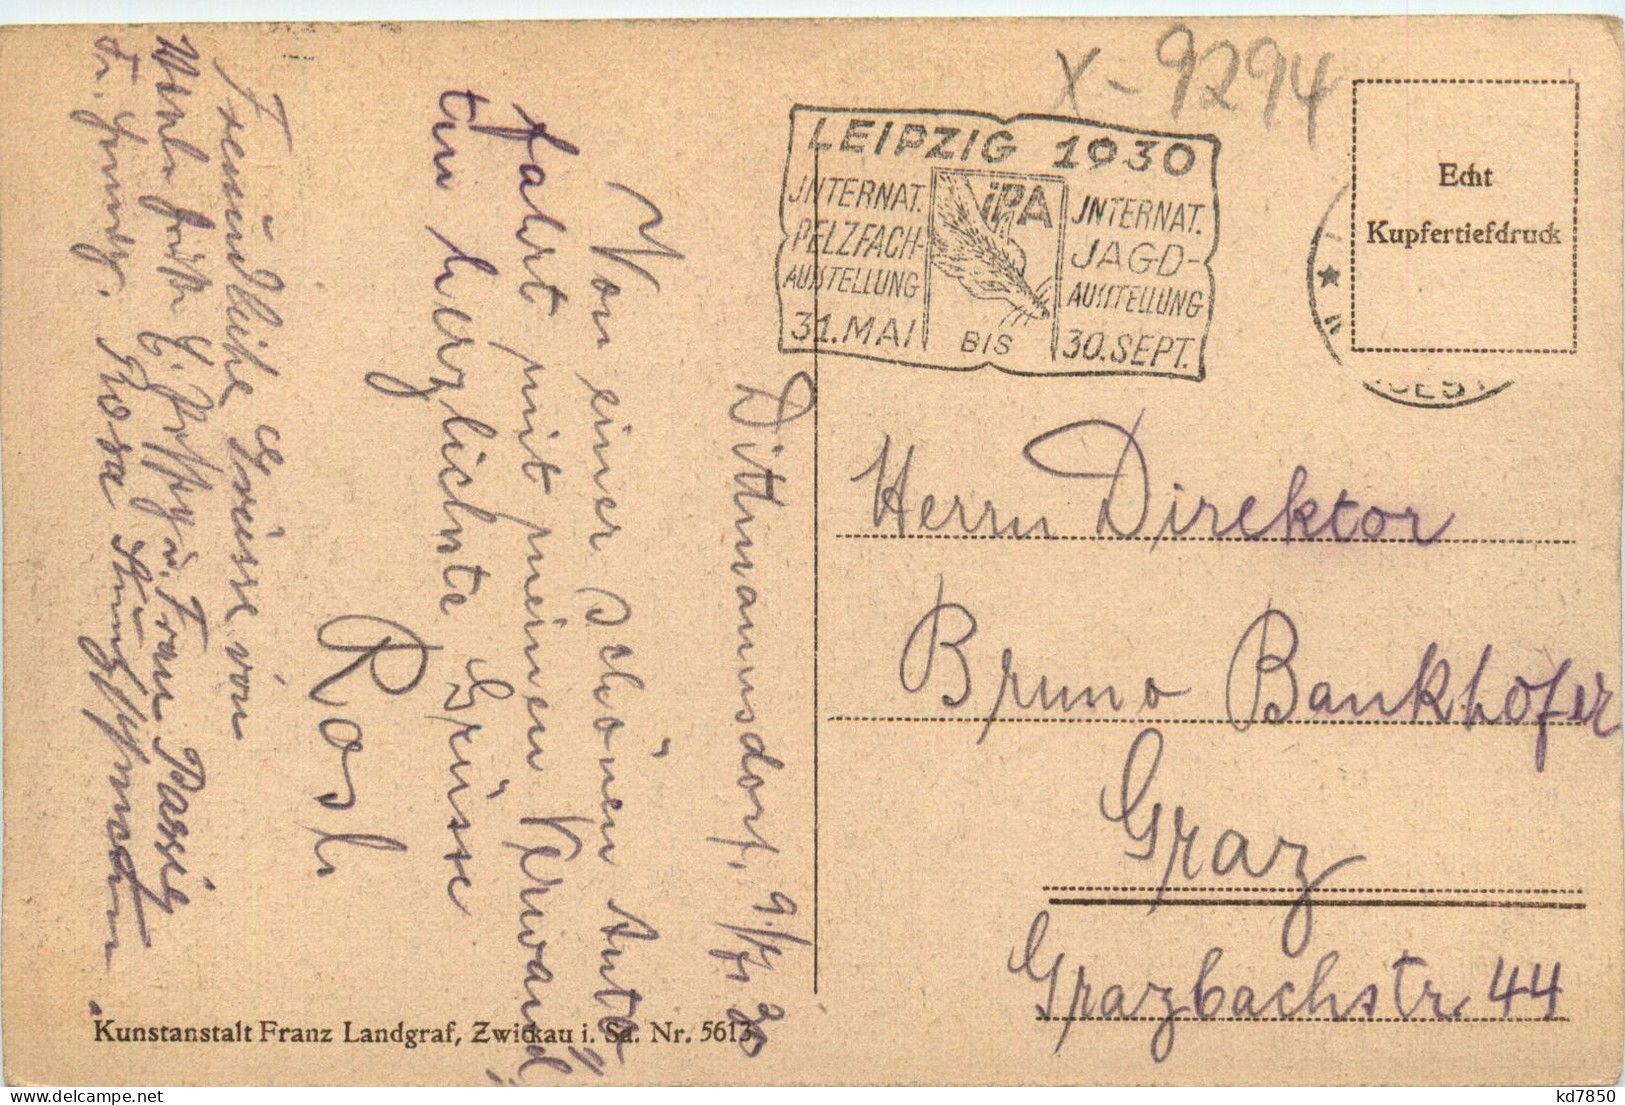 X-9294
LEIPZIG 1930
JNTERNAT.
PELZFACH-
AUSSTELLUNG
31. MAI
iPA
BIS
JNTERNAT.
JAGD-
AUSSTELLUNG
30. SEPT.
Echt
Kupfertiefdruck
Herrn Direktor
Bruno Bankhofer
Graz
Grazbachstr. 44
Dittmannsdorf, 9./
Von einer schönen Auto
fahrt mit meinen Verwand
ten herzlichste Grüsse
Rosl
Freundliche Grüsse von
u. Frau
Rosa
Kunstanstalt Franz Landgraf, Zwickau i. Sa. Nr. 5613
kd7850